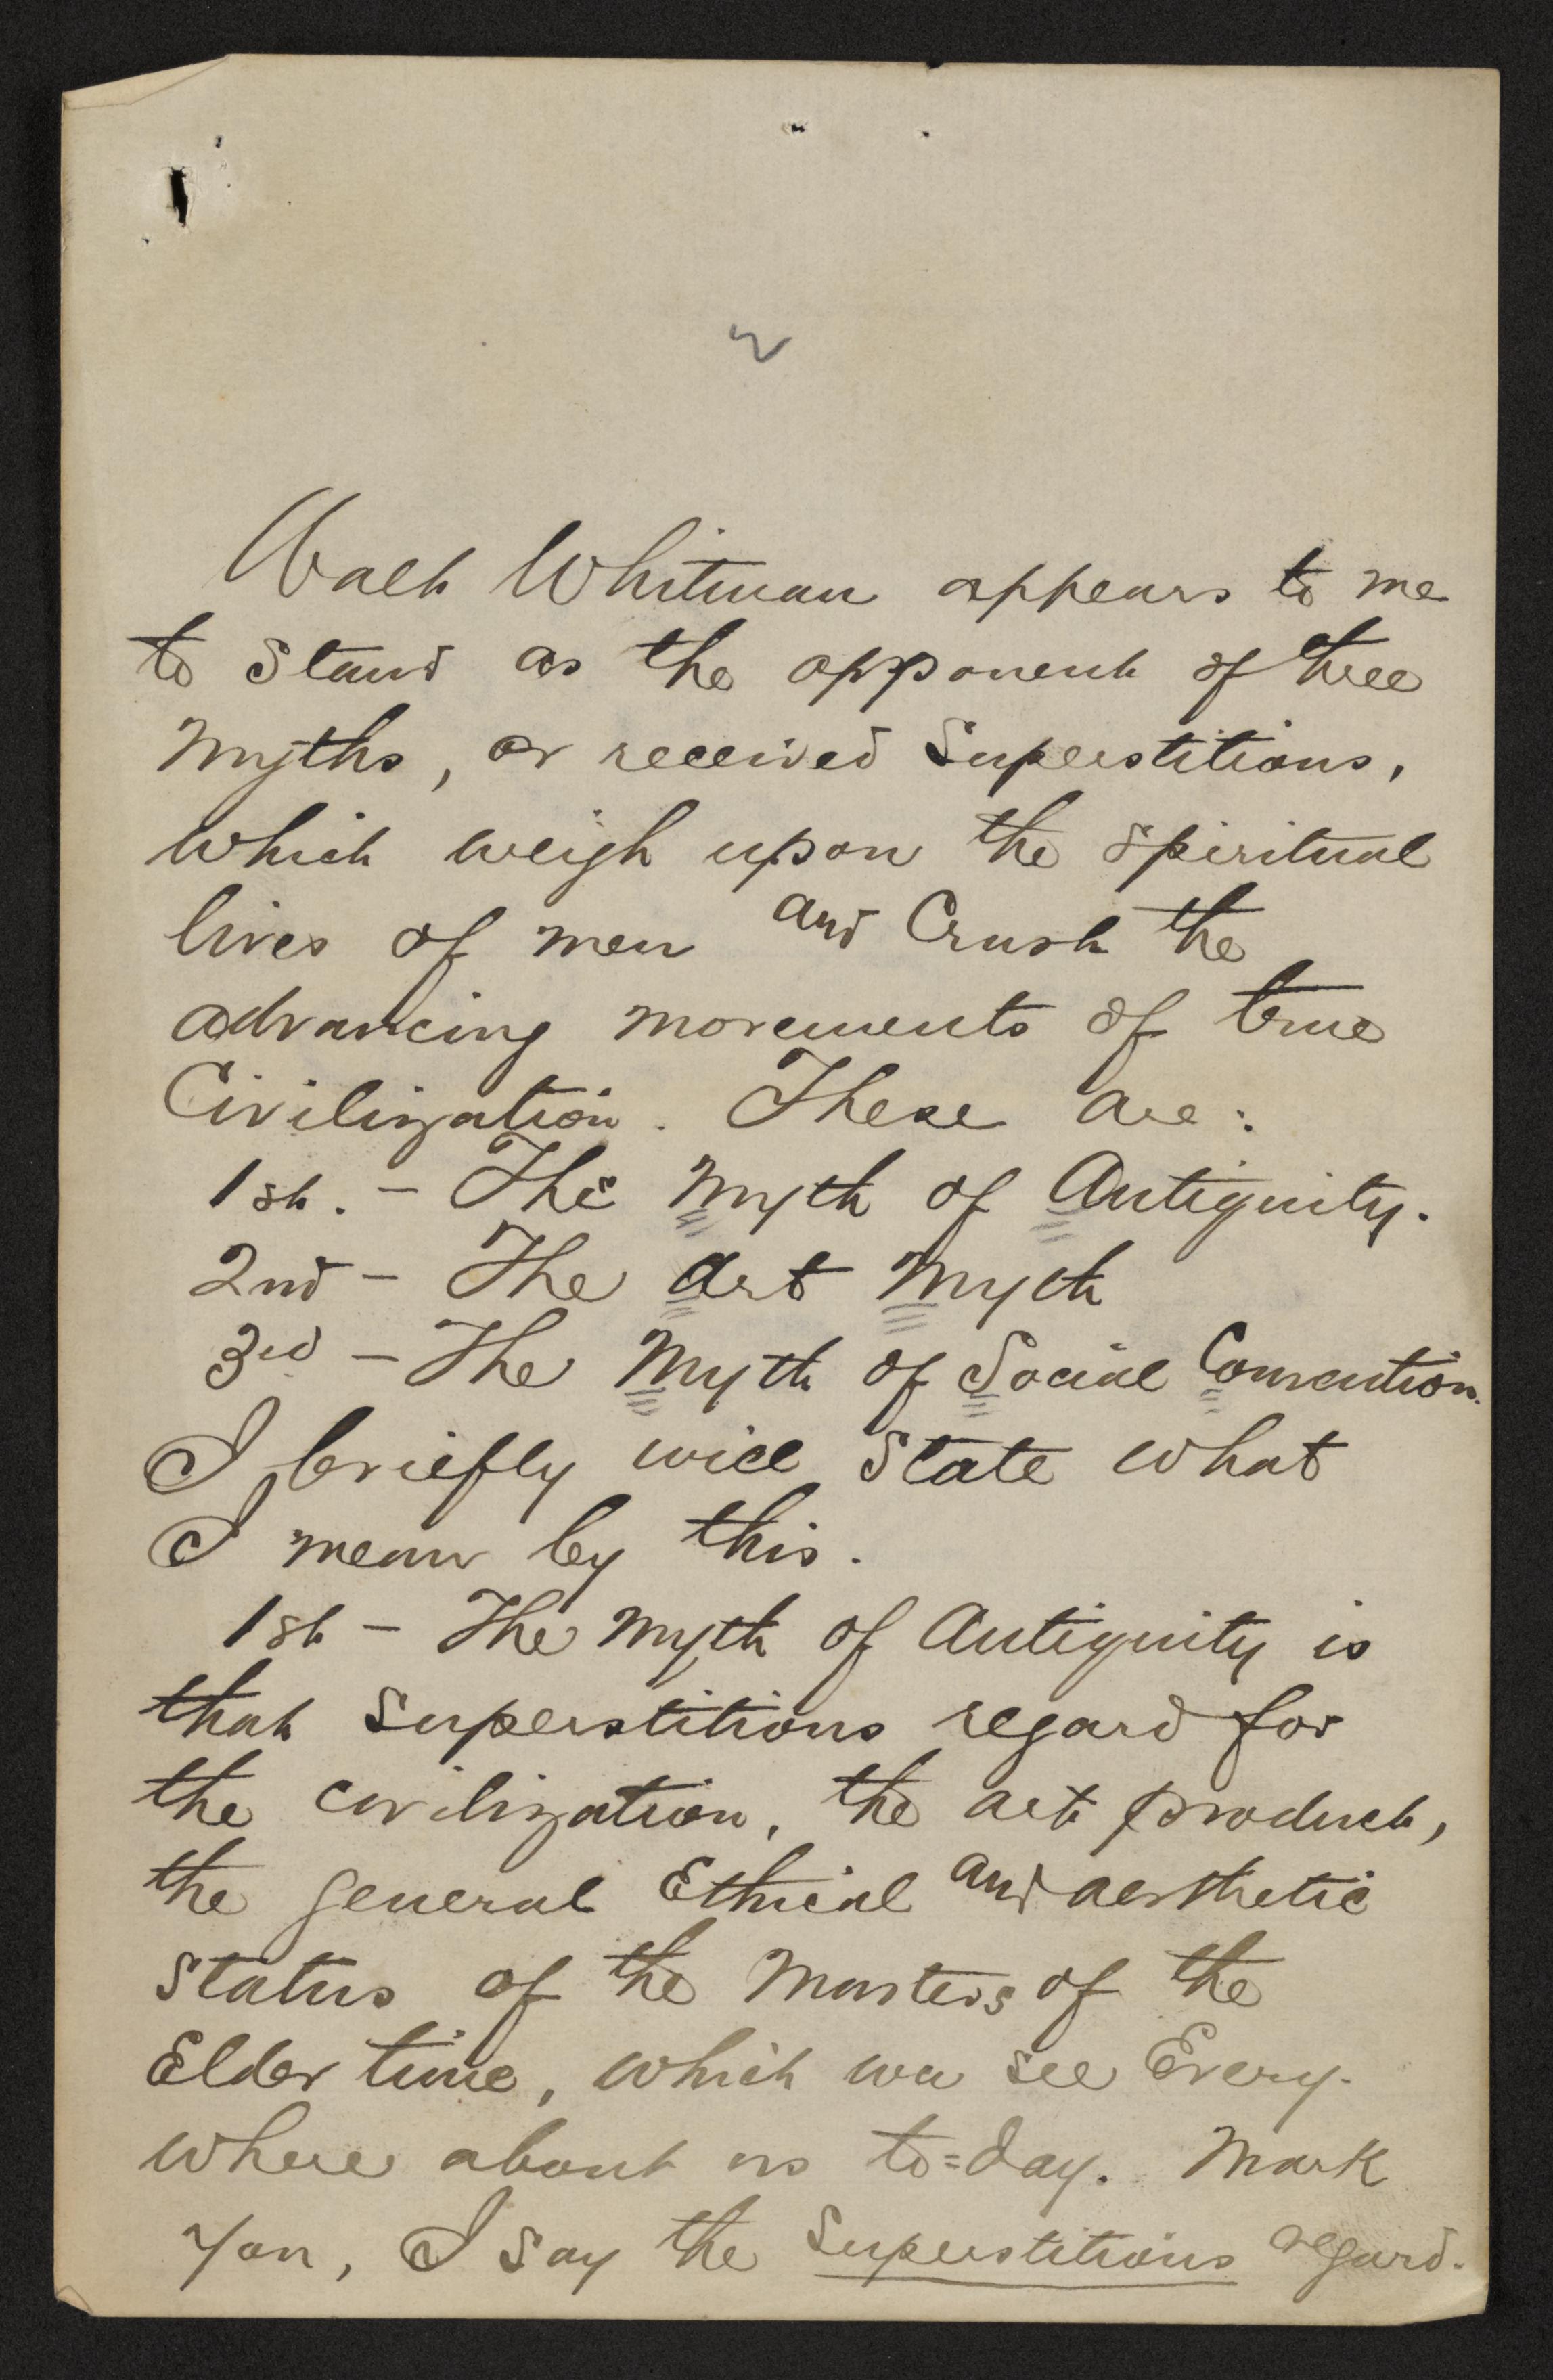 2
Walt Whitman appears to me
to stand as the opponent of three
Myths, or received Superstitions,
which weigh upon the spiritual
lives of men and Crush the
advancing movements of true
Civilization. These are:
1st. - The Myth of Antiquity.
2nd - The Art Myth
3rd - The Myth of Social Convention.
I briefly will State what
I mean by this.
1st - The Myth of Antiquity is
that Superstitious regard for
the civilization, the art product,
the general Ethical and aesthetic
Status of the Masters of the
Elder time, which we see Every-
where about us to=day. Mark
You, I say the Superstitious regard.